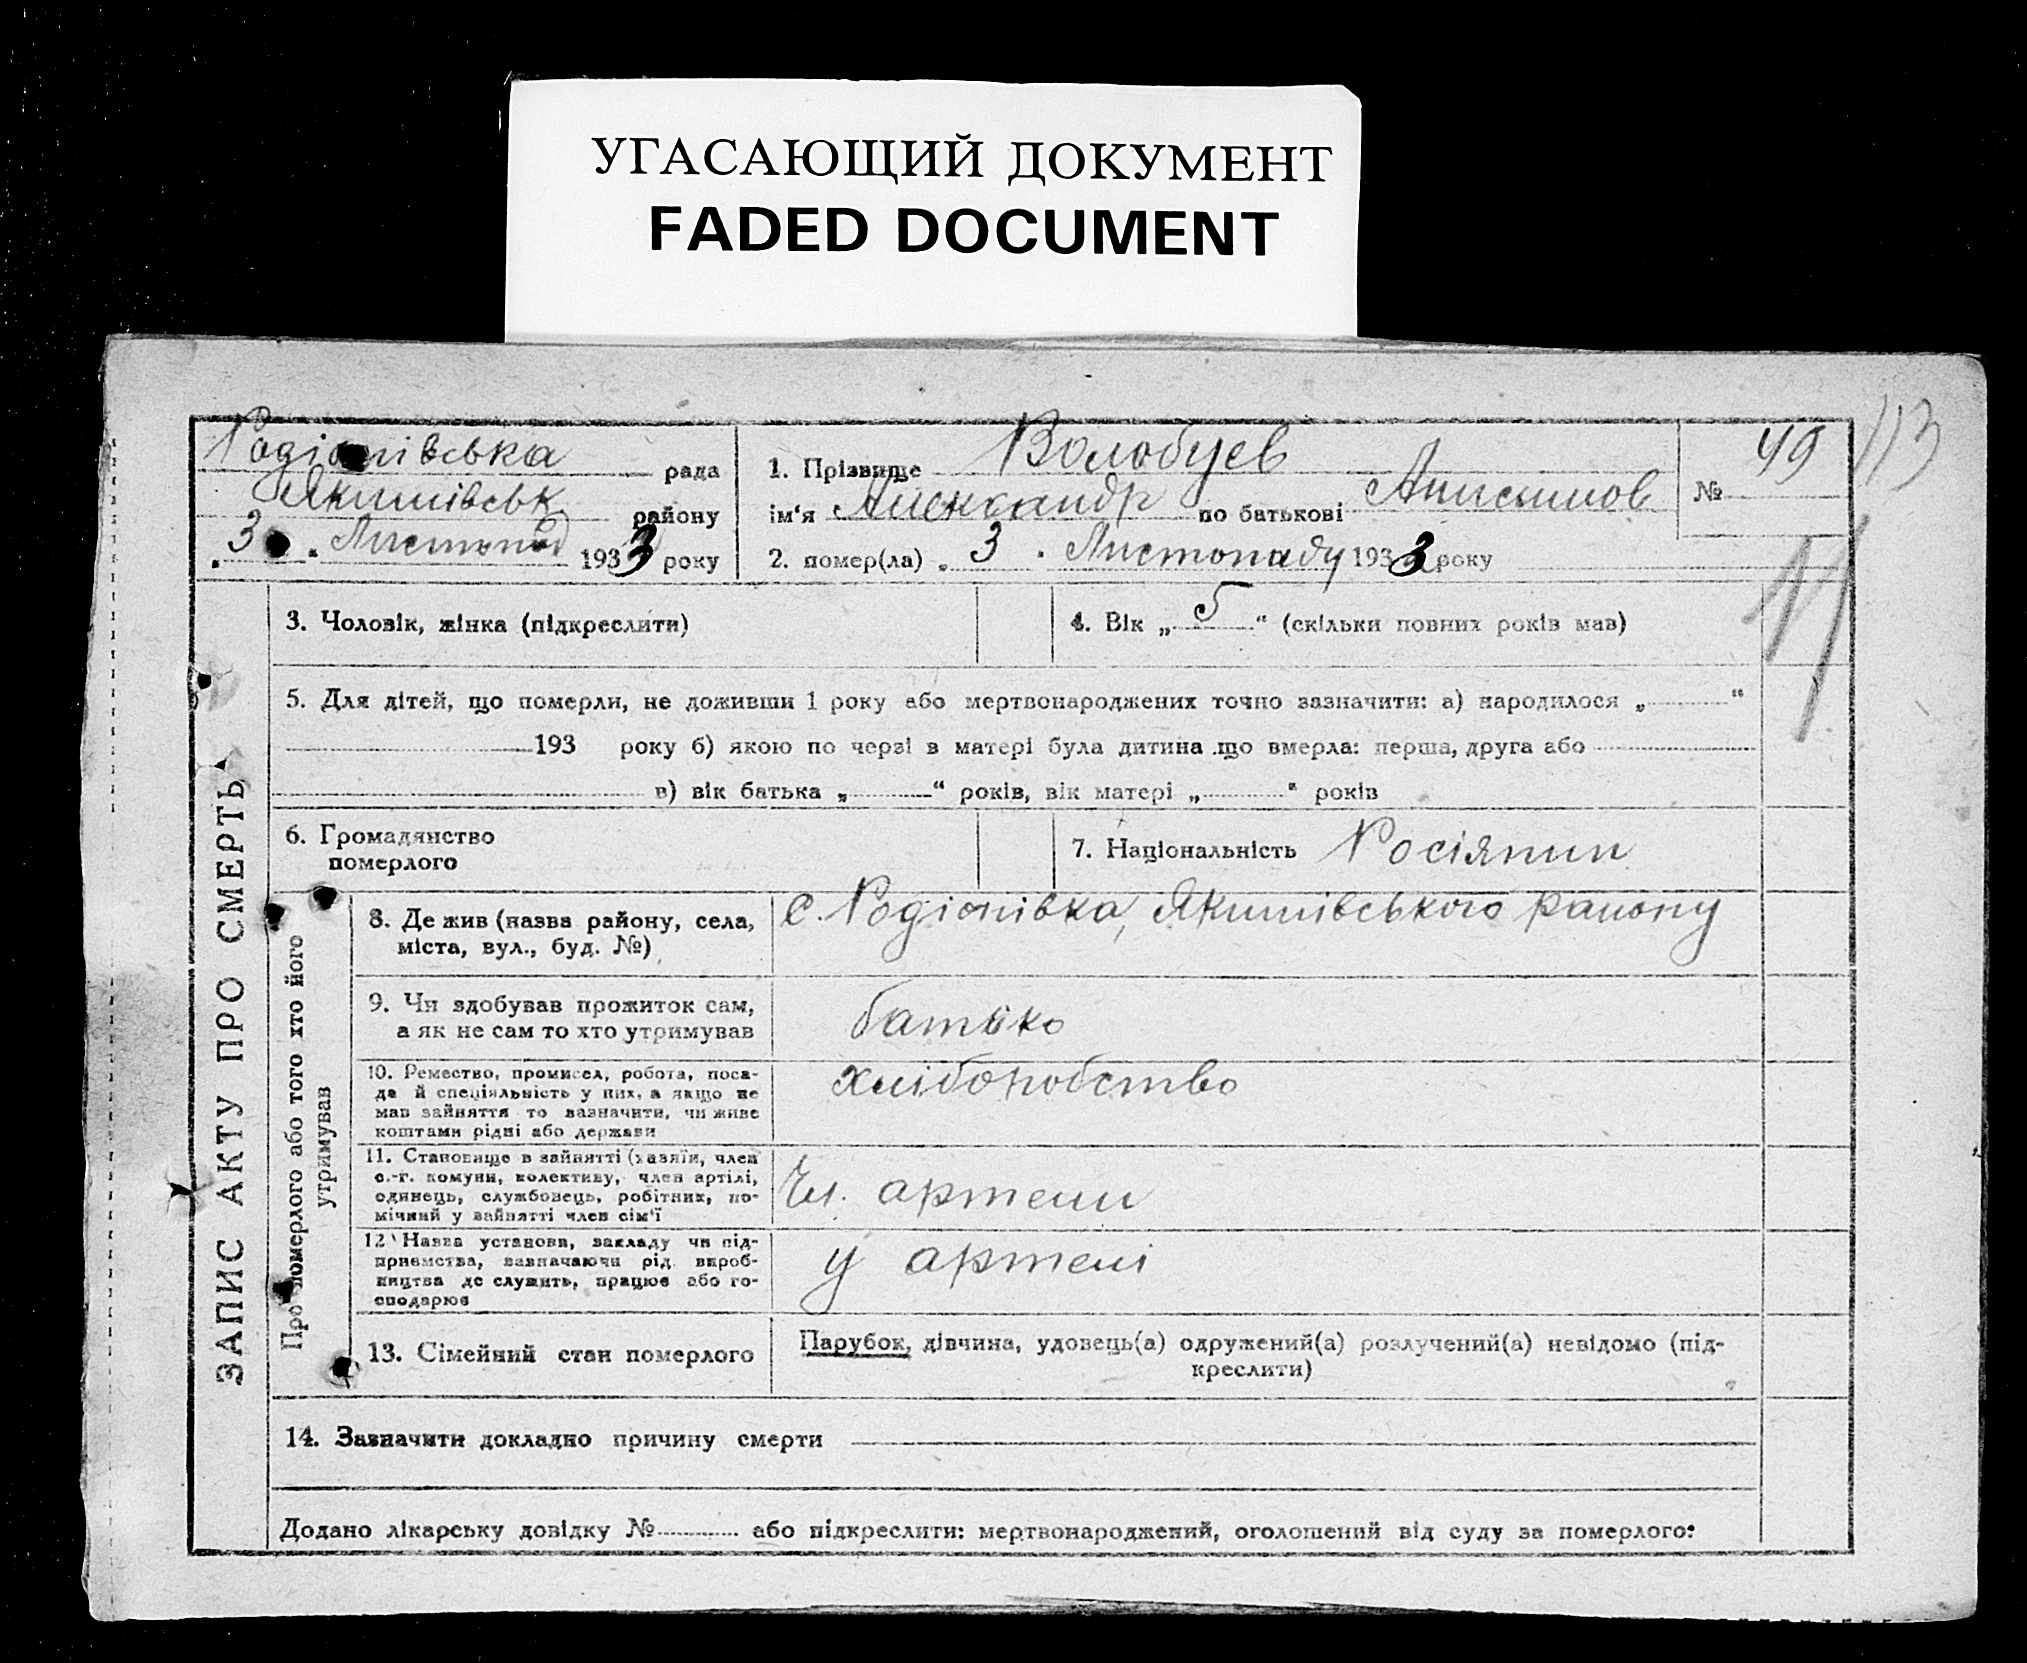 УГАСАЮЩИЙ ДОКУМЕНТ
FADED DOCUMENT
Родіонівська рада
Якимівськ району
„3" Листопад 1933 року
1. Прізвище Волобуев
ім'я Александр по батькові Анисимов
2. помер(ла) „3" Листопаду 1933 року
№ 49
113
3. Чоловік, жінка (підкреслити)
4. Вік „5" (скільки повних років мав)
5. Для дітей, що померли, не доживши 1 року або мертвонароджених точно зазначити: а) народилося „ "
193 року б) якою по черзі в матері була дитина що вмерла: перша, друга або
в) вік батька „ " років, вік матері „ " років
6. Громадянство
померлого
7. Національність Росіянин
ЗАПИС АКТУ ПРО СМЕРТЬ
Про померлого або того хто його
утримував
8. Де жив (назва району, села,
міста, вул., буд. №)
с. Родіонівка, Якимівського району
9. Чи здобував прожиток сам,
а як не сам то хто утримував
батько
10. Ремество, промисел, робота, поса-
да й спеціяльність у них, а якщо не
мав зайняття то зазначити, чи живе
коштами рідні або держави
хліборобство
11. Становище в зайнятті (хазяїн, член
с.-г. комуни, колективу, член артілі,
одинець, службовець, робітник, по-
мічний у зайнятті член сім'ї
Чл. артели
12 Назва установи, закладу чи під-
приємства, зазначаючи рід вироб-
ництва де служить, працює або го-
сподарює
у артелі
13. Сімейний стан померлого
Парубок, дівчина, удовець(а) одружений(а) розлучений(а) невідомо (під-
креслити)
14. Зазначити докладно причину смерти
Додано лікарську довідку № або підкреслити: мертвонароджений, оголошений від суду за померлого: